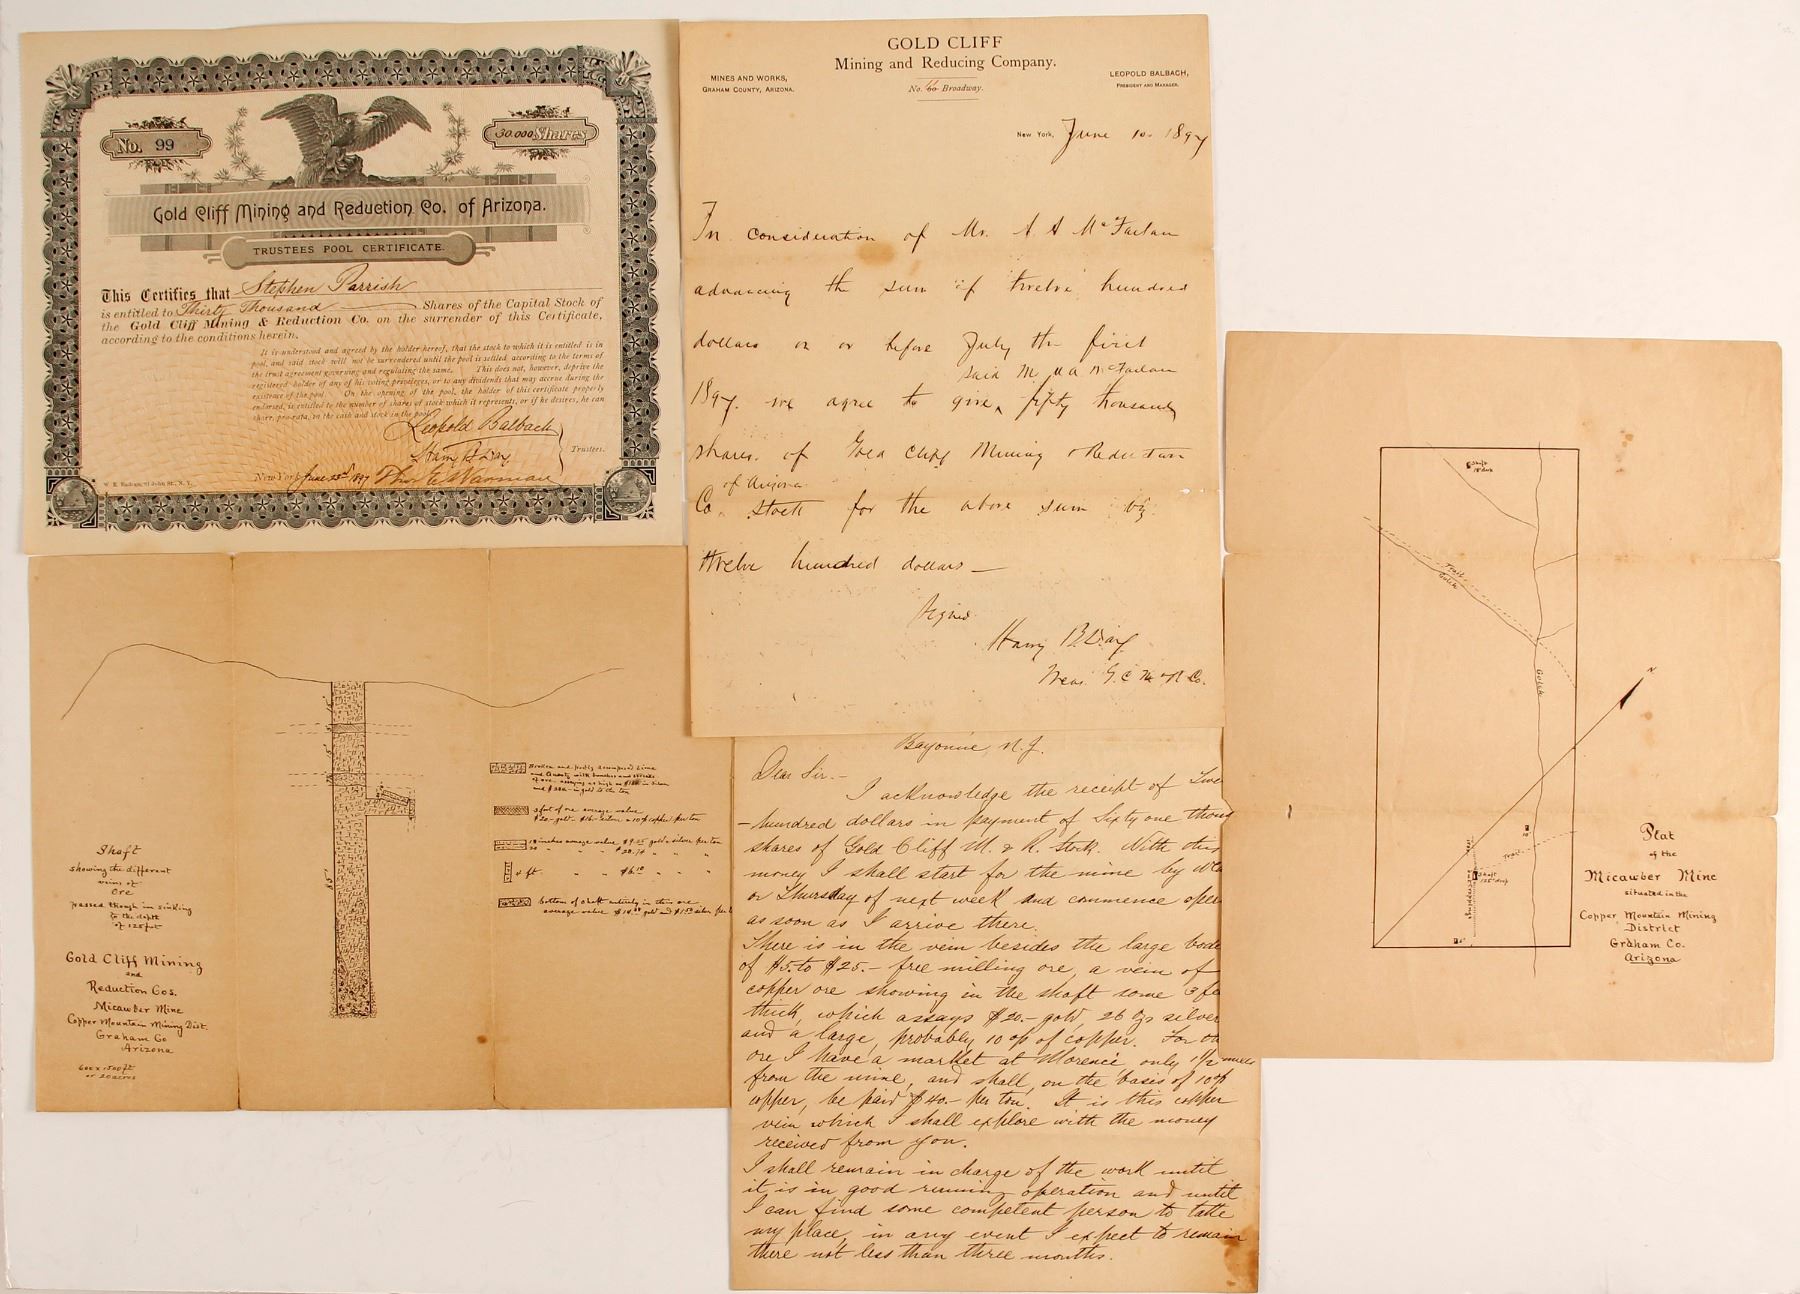 No. 99
30.000 Shares
Gold Cliff Mining and Reduction Co. of Arizona.
TRUSTEES POOL CERTIFICATE.
This Certifies that Stephen Parrish
is entitled to Thirty Thousand Shares of the Capital Stock of
the Gold Cliff Mining & Reduction Co. on the surrender of this Certificate,
according to the conditions herein.
It is understood and agreed by the holder hereof, that the stock to which it is entitled is in
pool, and said stock will not be surrendered until the pool is settled according to the terms of
the trust agreement governing and regulating the same. This does not, however, deprive the
registered holder of any of his voting privileges, or to any dividends that may accrue during the
existence of the pool. On the opening of the pool, the holder of this certificate properly
endorsed, is entitled to the number of shares of stock which it represents, or if he desires, he can
share, pro-rata, in the cash and stock in the pool.
Leopold Balbach
Harry B Day
Trustees.
New York June 23rd 1897 Thos E Warman
GOLD CLIFF
Mining and Reducing Company.
MINES AND WORKS,
GRAHAM COUNTY, ARIZONA.
LEOPOLD BALBACH,
PRESIDENT AND MANAGER.
No. Broadway.
New York, June 10. 1897
In consideration of Mr. A A McFarlan
advancing the sum of twelve hundred
dollars on or before July the first
said M A McFarlan
1897. we agree to give fifty thousand
shares of Gold Cliff Mining & Reduction
of Arizona
Co. stock for the above sum
twelve hundred dollars —
Signed
Harry B. Day
Treas. G. C. M & R Co.
Bayonne, N. J.
Dear Sir. –
I acknowledge the receipt of
hundred dollars in payment of Sixty one
shares of Gold Cliff M. & R. Stock. With this
money I shall start for the mine by
or Thursday of next week and commence
as soon as I arrive there.
There is in the vein besides the large
of $5. to $25. – free milling ore, a vein of
copper ore showing in the shaft some 3
thick, which assays $20. – gold, 26 ozs silver
and a large, probably 10 % of copper. For
ore I have a market at Morenci only 1½ miles
from the mine, and shall, on the basis of 10%
copper, be paid $40. – per ton. It is this copper
vein which I shall explore with the money
received from you.
I shall remain in charge of the work until
it is in good running operation and until
I can find some competent person to take
my place, in any event I expect to remain
there not less than three months.
Shaft
showing the different
veins of
Ore
passed though in sinking
to the depth
of 125 feet
Gold Cliff Mining
and
Reduction Cos.
Micawber Mine
Copper Mountain Mining Dist.
Graham Co
Arizona
600 x 1500 ft
or 20 acres
Broken and partly decomposed Lime
and Quartz with bunches and
of ore assaying as high as in silver
and in gold to the ton
3 feet of ore average value
$20 – gold – $16 – silver – 10% copper per ton
18 inches average value $9.25 gold & silver per ton
4 ft.
bottom of shaft entirely in this ore
average value gold and silver per
Shaft
Trail
Gulch
Gulch
N
10
Trail
Shaft
125 deep
Plat
of the
Micawber Mine
situated in the
Copper Mountain Mining
District
Graham Co.
Arizona